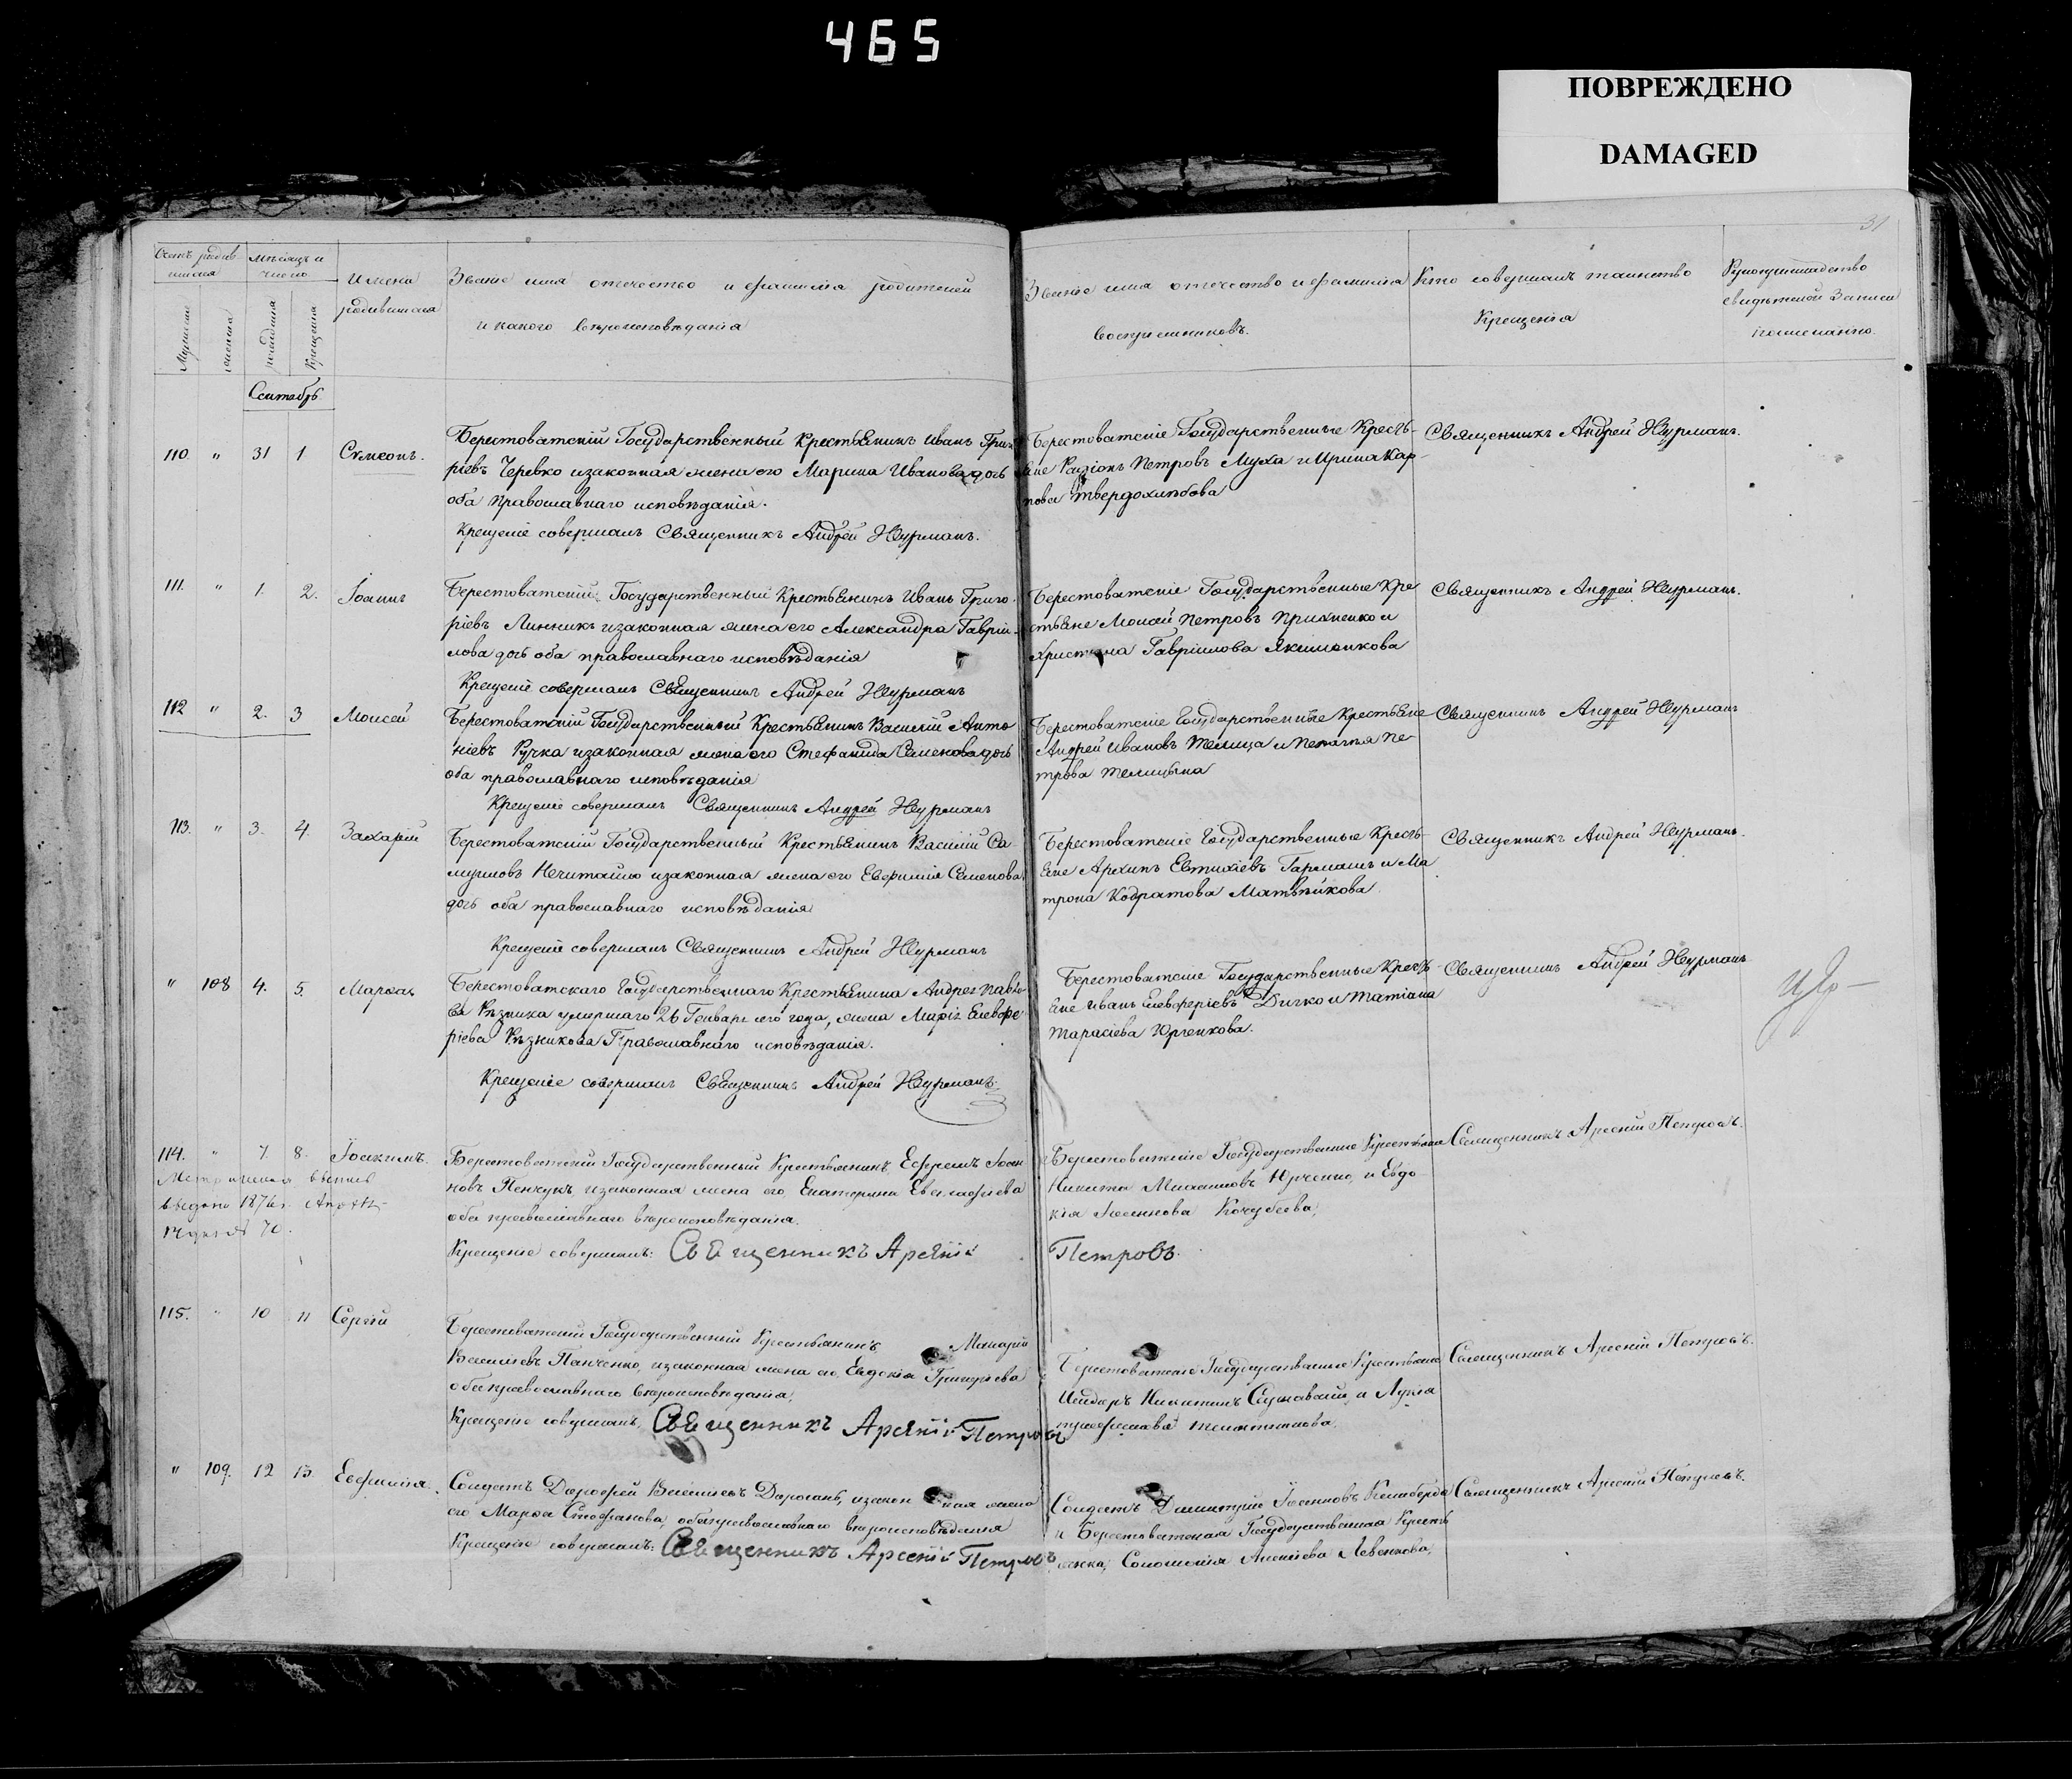 465
ПОВРЕЖДЕНО
DAMAGED
31
Счетъ родив-
шихся
Мѣсяцъ и
число
Имена
родившихся
Званіе имя отечество и фамилія родителей
и какого вѣроисповѣданія
Званіе имя отечество и фамилія
воспріемниковъ.
Кто совершалъ таинство
Крещенія
Рукоприкладство
свидѣтелей записи
по желанію.
рожденія
Крещенія
Сентябрь
110. " 31 1. Сѵмеонъ.
Берестоватскій Государственный Крестьянинъ Иванъ Григо
ріевъ Черевко и законная жена его Марина Иванова дочь
оба православнаго исповѣданія.
Крещеніе совершалъ Священникъ Андрей Нурманъ.
Берестоватскіе Государственные Кресть-
яне Родіонъ Петровъ Муха и Ирина Кар-
пова Твердохлѣбова
Священникъ Андрей Нурманъ.
111. " 1. 2. Іоаннъ
Берестоватскій Государственный Крестьянинъ Иванъ Григо-
ріевъ Линникъ и законная жена его Александра Гавріи-
лова дочь оба православнаго исповѣданія
Крещеніе совершалъ Священникъ Андрей Нурманъ
Берестоватскіе Государственные Кре
стьяне Моисей Петровъ Прихненко и
Христина Гавріилова Якименкова
Священникъ Андрей Нурманъ.
112 " 2. 3 Моисей
Берестоватскій Государственный Крестьянинъ Василій Анто
ніевъ Ручка и законная жена его Стефанида Семенова дочь
оба православнаго исповѣданія
Крещеніе совершалъ Священникъ Андрей Нурманъ
Берестоватскіе Государственные Крестьяне
Андрей Ивановъ Телица и Пелагія Пе-
трова Телицына
Священникъ Андрей Нурманъ
113. " 3. 4. Захарій
Берестоватскій Государственный Крестьянинъ Василій Са
муиловъ Нечитайло и законная жена его Евфимія Семенова
дочь оба православнаго исповѣданія
Крещеніе совершалъ Священникъ Андрей Нурманъ
Берестоватскіе Государственные Кресть-
яне Архипъ Евтихіевъ Гармашъ и Ма
трона Кодратова
Священникъ Андрей Нурманъ.
" 108 4. 5. Марѳа
Берестоватскаго Государственнаго Крестьянина Андрея Павло
ва Рѣзника умершаго 26 Генваря сего года, жена Марія Елевфе
ріева Рѣзникова Православнаго исповѣданія.
Крещеніе совершалъ Священникъ Андрей Нурманъ.
Берестоватскіе Государственные Кресть-
яне Иванъ Елевферіевъ Дичко и Татіана
Тарасіева Юрченкова.
Священникъ Андрей Нурманъ
114. " 7. 8. Іоакимъ.
Метрическая выпись
выдана 1876 г. Апрѣля
№ 70.
Берестоватскій Государственный Крестьянинъ Ефремъ Іоан
новъ и законная жена его, Екатерина
оба православнаго вѣроисповѣданія.
Крещеніе совершалъ: Священникъ Арсеній
Петровъ.
Берестоватскіе Государственные Крестьяне
Никита Юрченко, и Евдо
кія Іоаннова Кочубеева,
Священникъ Арсеній Петровъ.
115. " 10 11 Сергій
Берестоватскій Государственный Крестьянинъ Макарій
Васильевъ Панченко, и законная жена его, Евдокія Григоріева
оба православнаго вѣроисповѣданія,
Крещеніе совершалъ, Священникъ Арсеній Петровъ
Берестоватскіе Государственные Крестьяне
Исидоръ Никитинъ и Лукія
Священникъ Арсеній Петровъ.
" 109. 12 13. Евфимія.
Солдатъ Дорофей Васильевъ Дорошъ, и законная жена
его Марѳа Стефанова, оба православнаго вѣроисповѣданія
Крещеніе совершалъ: Священникъ Арсеній Петровъ
Солдатъ Димитрій Іоанновъ Келеберда
и Берестоватская Государственная Кресть
янка, Соломонія Левенкова,
Священникъ Арсеній Петровъ.